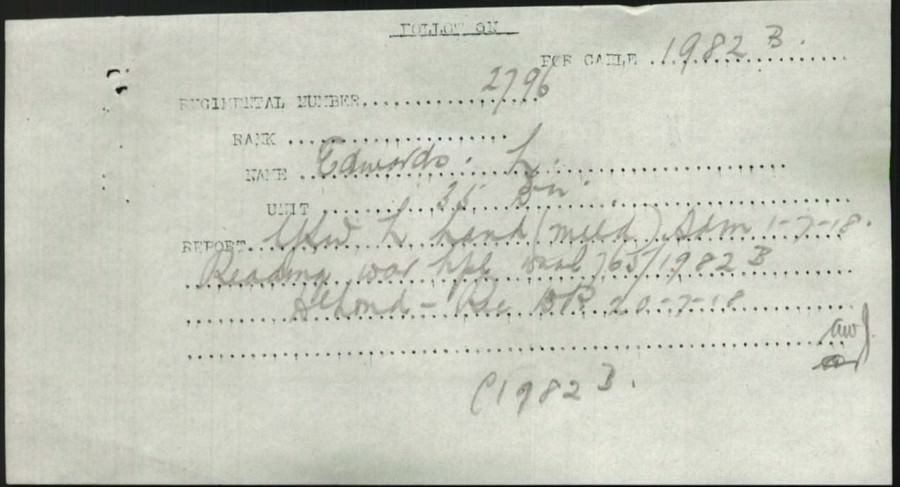 FOLLOT ON
FOR CABLE 1982 B.
REGIMENTAL NUMBER 2796
RANK
NAME Edwards. L.
UNIT 35 Bn.
REPORT GSW L hand (mild) Adm 1-7-18.
Reading war hpl 765/1982 B
20-7-18
AWJ
C1982 B.